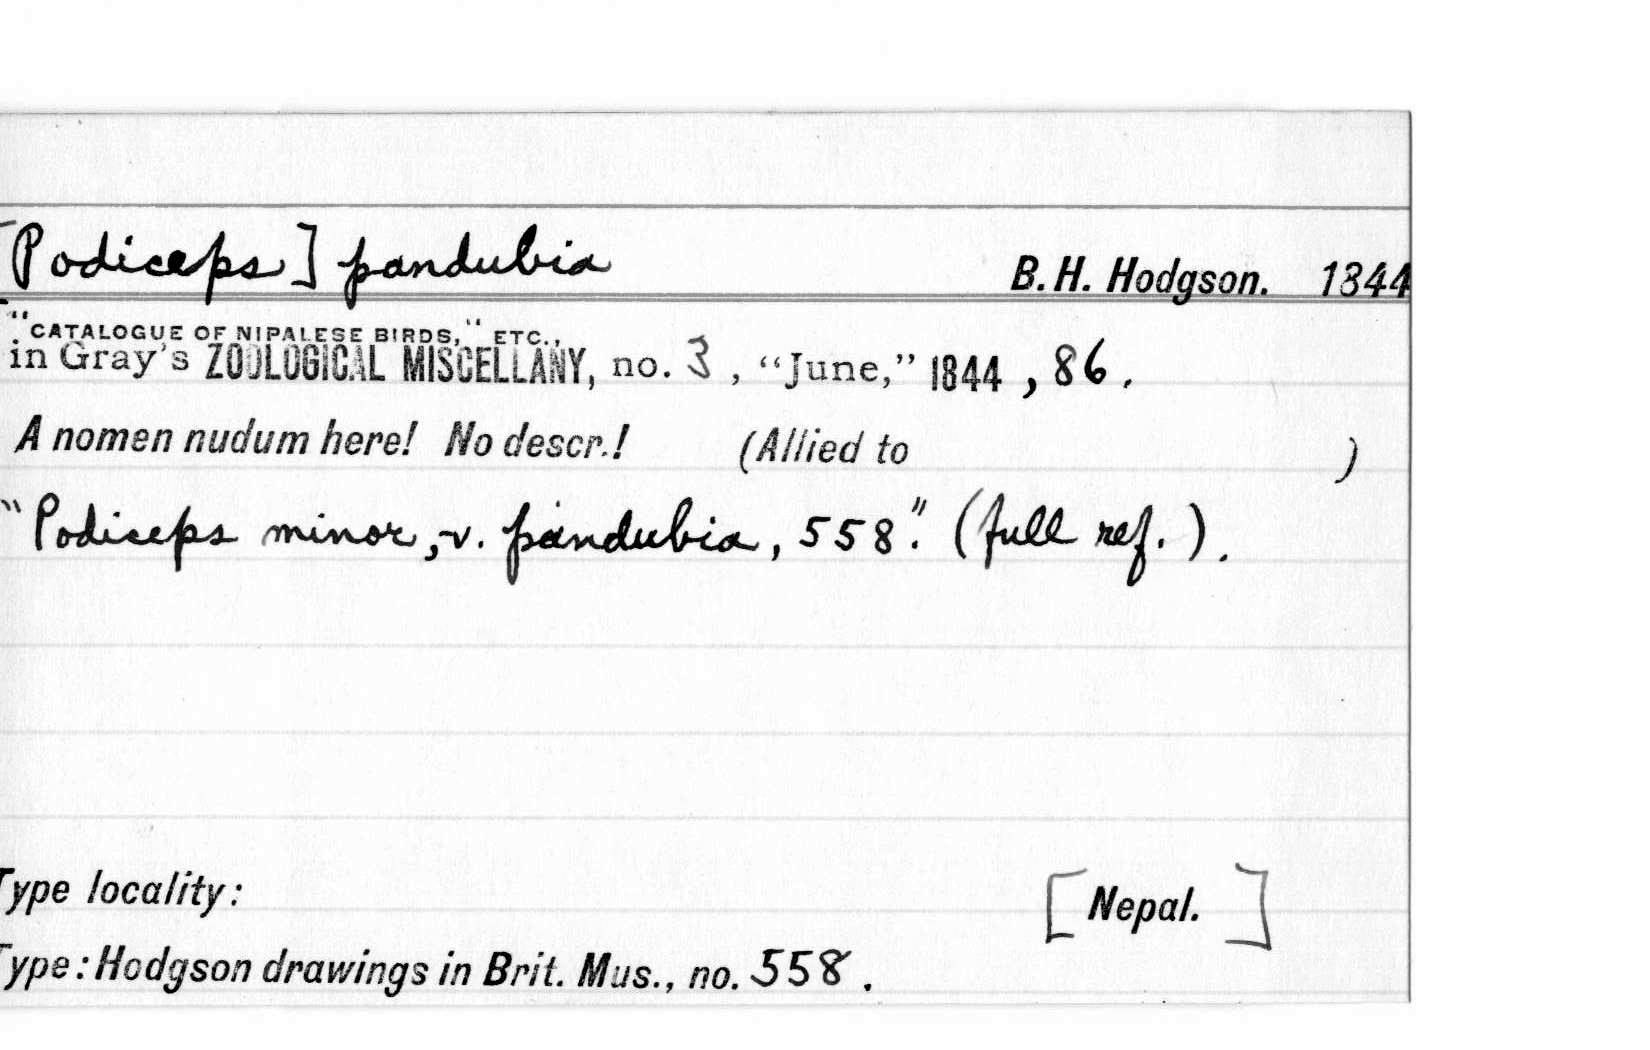 [Podiceps] pandubia B. H. Hodgson. 1844
"CATALOGUE OF NIPALESE BIRDS," ETC.,
in Gray's ZOOLOGICAL MISCELLANY, no. 3, "June," 1844, 86.
A nomen nudum here! No descr.! (Allied to )
"Podiceps minor, v. pandubia, 558". (full ref.).
Type locality: [Nepal.]
Type: Hodgson drawings in Brit. Mus., no. 558.